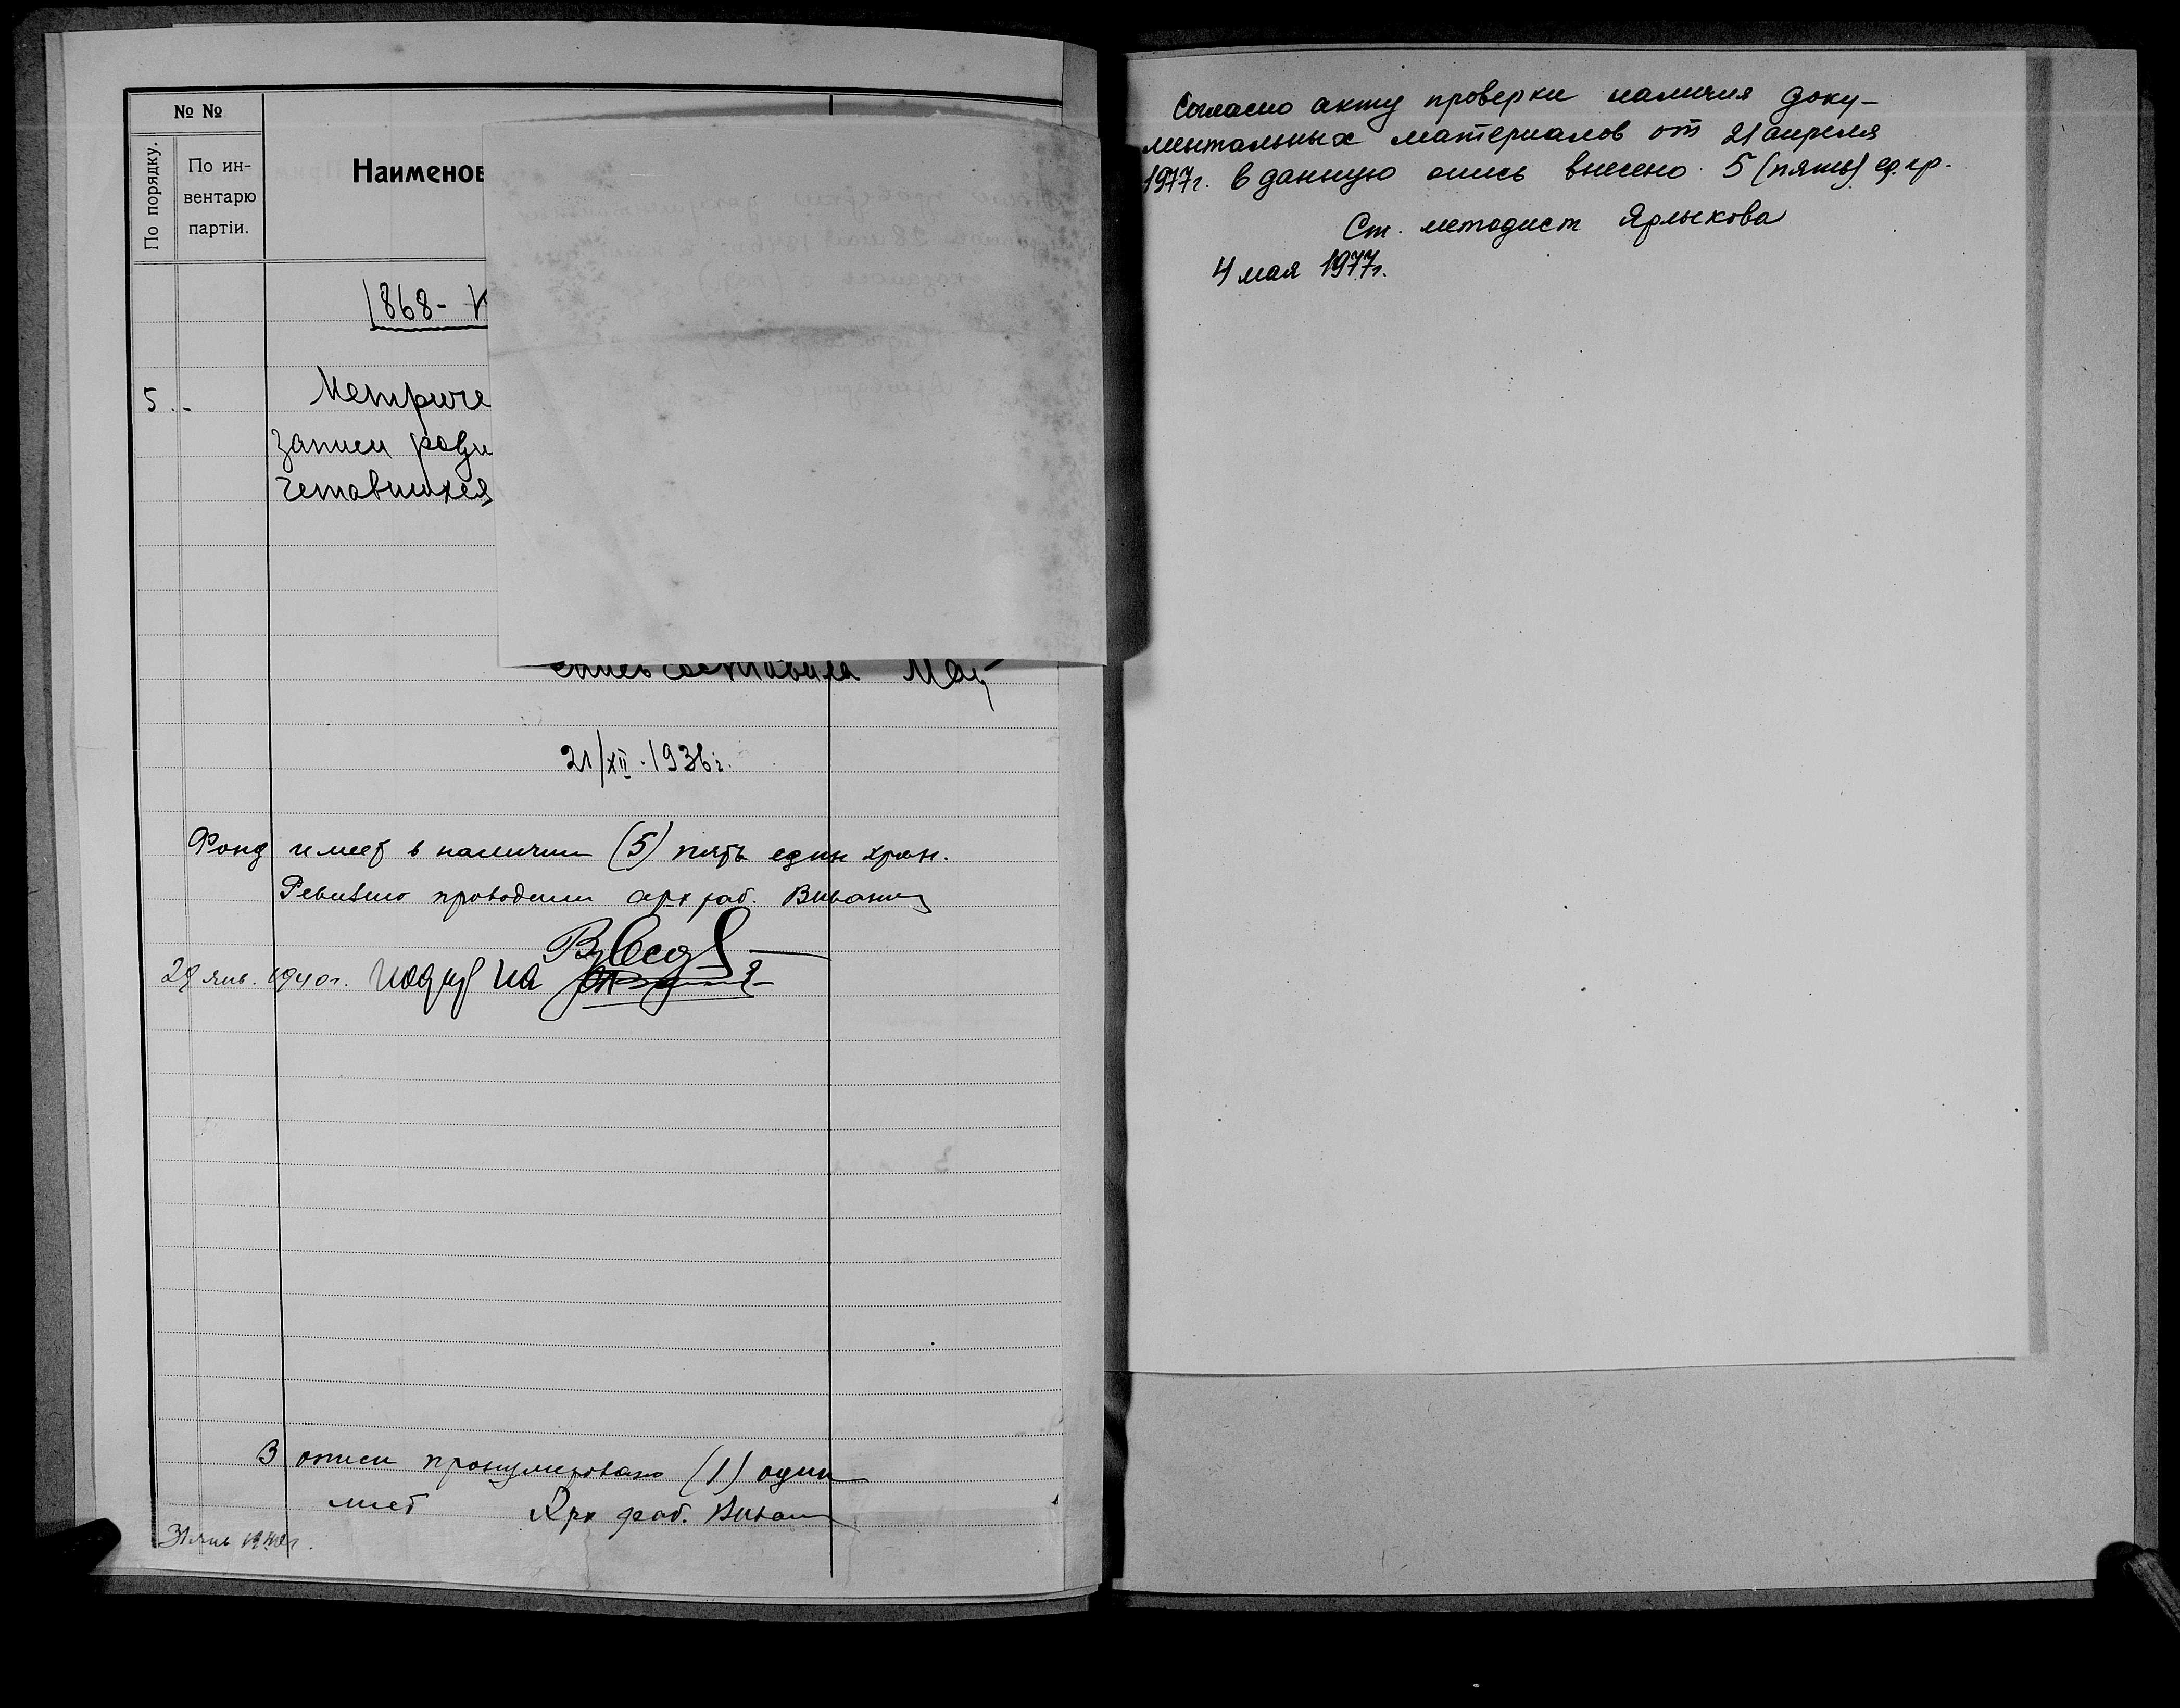 № №
По порядку.
По ин-
вентарю
партіи.
Наименов
1868-
5.-
Метриче
записи роди
четавшихся
опись составила
21/XII.1936г.
Фонд имеет в наличии (5) пять един хран.
Ревизию проводили арх раб.
29 янв. 1940г.
В описи пронумеровано (1) один
лист Арх раб.
31 янв 1940г.
Согласно акту проверки наличия доку-
ментальных материалов от 21 апреля
1977г. в данную опись внесено 5 (пять) ед. хр.
Ст. методист Ярлыкова
4 мая 1977г.